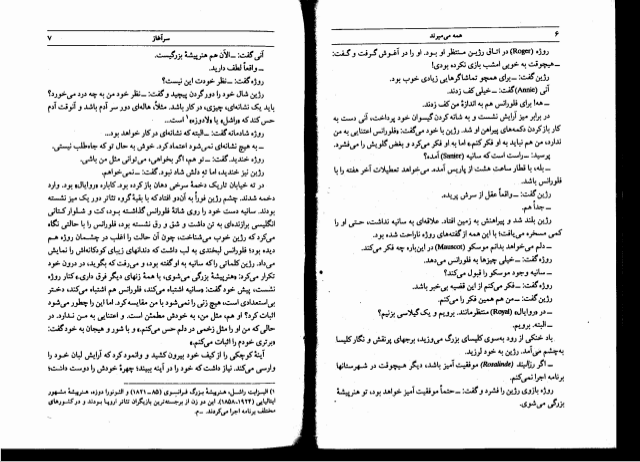 ۶ همه می‌میرند
روژه (Roger) در اتاق رژین منتظر او بود. او را در آغوش گرفت و گفت:
ــ هیچوقت به خوبی امشب بازی نکرده بودی!
رژین گفت: ــ برای همچو تماشاگرهایی زیادی خوب بود.
آنی (Annie) گفت: ــ خیلی کف زدند.
ــ هه! برای فلورانس هم به اندازهٔ من کف زدند.
در برابر میز آرایش نشست و به شانه کردن گیسوان خود پرداخت، آنی دست به
کار باز کردن دکمه‌های پیراهن او شد. رژین با خود می‌گفت: «فلورانس اعتنایی به من
ندارد، من هم نباید به او فکر کنم.» اما به او فکر می‌کرد و بغض گلویش را می‌فشرد.
پرسید: ــ راست است که سانیه (Sanier) آمد؟
ــ بله، با قطار ساعت هشت از پاریس آمد. می‌خواهد تعطیلات آخر هفته را با
فلورانس باشد.
رژین گفت: ــ واقعاً عقل از سرش پریده.
ــ جداً هم.
رژین بلند شد و پیراهنش به زمین افتاد. علاقه‌ای به سانیه نداشت، حتی او را
کمی مسخره می‌یافت؛ با این همه از گفته‌های روژه ناراحت شده بود.
ــ دلم می‌خواهد بدانم موسکو (Mauscot) در این‌باره چه فکر می‌کند.
روژه گفت: ــ خیلی چیزها به فلورانس می‌دهد.
ــ سانیه وجود موسکو را قبول می‌کند؟
روژه گفت: ــ فکر می‌کنم از این قضیه بی‌خبر باشد.
رژین گفت: ــ من هم همین فکر را می‌کنم.
ــ در «رویال» (Royal) منتظرمانند. برویم و یک گیلاسی بزنیم؟
ــ البته. برویم.
باد خنکی از رود به‌سوی کلیسای بزرگ می‌وزید، برجهای پرنقش و نگار کلیسا
به‌چشم می‌آمد. رژین به خود لرزید.
ــ اگر رزالیند (Rosalinde) موفقیت آمیز باشد، دیگر هیچوقت در شهرستانها
برنامه اجرا نمی‌کنم.
روژه بازوی رژین را فشرد و گفت: ــ حتماً موفقیت آمیز خواهد بود، تو هنرپیشهٔ
بزرگی می‌شوی.
سرآغاز ۷
آنی گفت: ــ الآن هم هنرپیشهٔ بزرگیست.
ــ واقعاً لطف دارید.
روژه گفت: ــ نظر خودت این نیست؟
رژین شال خود را دور گردن پیچید و گفت: ــ نظر خود من به چه درد می‌خورد؟
باید یک نشانه‌ای، چیزی، در کار باشد. مثلاً، هاله‌ای دور سر آدم باشد و آنوقت آدم
حس کند که «راشل» یا «لادوزه»¹ است...
روژه شادمانه گفت: ــ البته که نشانه‌ای در کار خواهد بود...
ــ به هیچ نشانه‌ای نمی‌شود اعتماد کرد. خوش به حال تو که جاه‌طلب نیستی.
روژه خندید. گفت: ــ تو هم، اگر بخواهی، می‌توانی مثل من باشی.
رژین نیز خندید، اما ته دلش شاد نبود. گفت: ــ نمی‌خواهم.
در ته خیابان تاریک دخمهٔ سرخی دهان باز کرده بود. کاباره «رویال» بود. وارد
دخمه شدند. چشم رژین فوراً به آن‌دو افتاد که با بقیهٔ گروه تئاتر دور یک میز نشسته
بودند. سانیه دست خود را روی شانهٔ فلورانس گذاشته بود، کت و شلوار کتانی
انگلیسی برازنده‌ای به تن داشت و شق و رق نشسته بود، فلورانس را با حالتی نگاه
می‌کرد که رژین خوب می‌شناخت، چون آن حالت را اغلب در چشمان روژه هم
دیده بود؛ فلورانس لبخندی به لب داشت که دندانهای زیبای کودکانه‌اش را نمایش
می‌داد. رژین کلماتی را که سانیه به او گفته بود، و می‌رفت که بگوید، در درون خود
تکرار می‌کرد: «هنرپیشهٔ بزرگی می‌شوی، با همهٔ زنهای دیگر فرق داری.» کنار روژه
نشست، پیش خود گفت: «سانیه اشتباه می‌کند، فلورانس هم اشتباه می‌کند، دختر
بی‌استعدادی است، هیچ زنی را نمی‌شود با من مقایسه کرد. اما این را چطور می‌شود
اثبات کرد؟ او هم، مثل من، به خودش مطمئن است. و اعتنایی به من ندارد. در
حالی که من او را مثل زخمی در دلم حس می‌کنم.» و با شور و هیجان به خود گفت:
«برتری خودم را اثبات می‌کنم.»
آینهٔ کوچکی را از کیف خود بیرون کشید و وانمود کرد که آرایش لبان خود را
وارسی می‌کند. نیاز داشت که خود را در آینه ببیند؛ چهرهٔ خودش را دوست داشت؛
۱) الیزابت راشل، هنرپیشهٔ بزرگ فرانسوی و النورا دوزه، هنرپیشهٔ مشهور
ایتالیایی (۱۹۲۴ـ۱۸۵۸). این دو زن از برجسته‌ترین بازیگران تئاتر اروپا بودند و در کشورهای
مختلف برنامه اجرا می‌کردند. ــ م.